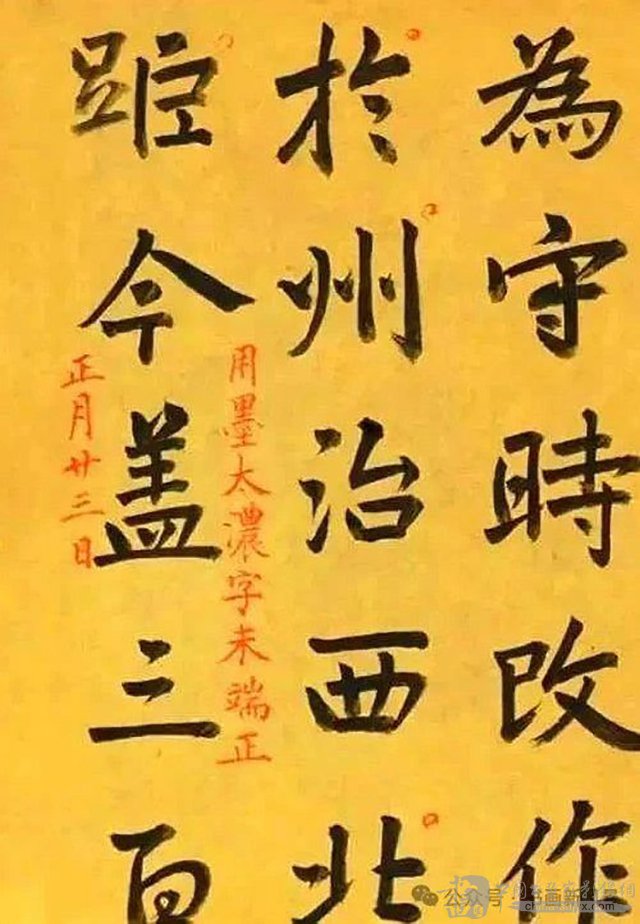 為守時改作
於州治西北
距今盖三百
用墨太濃字未端正
正月廿三日
公众号